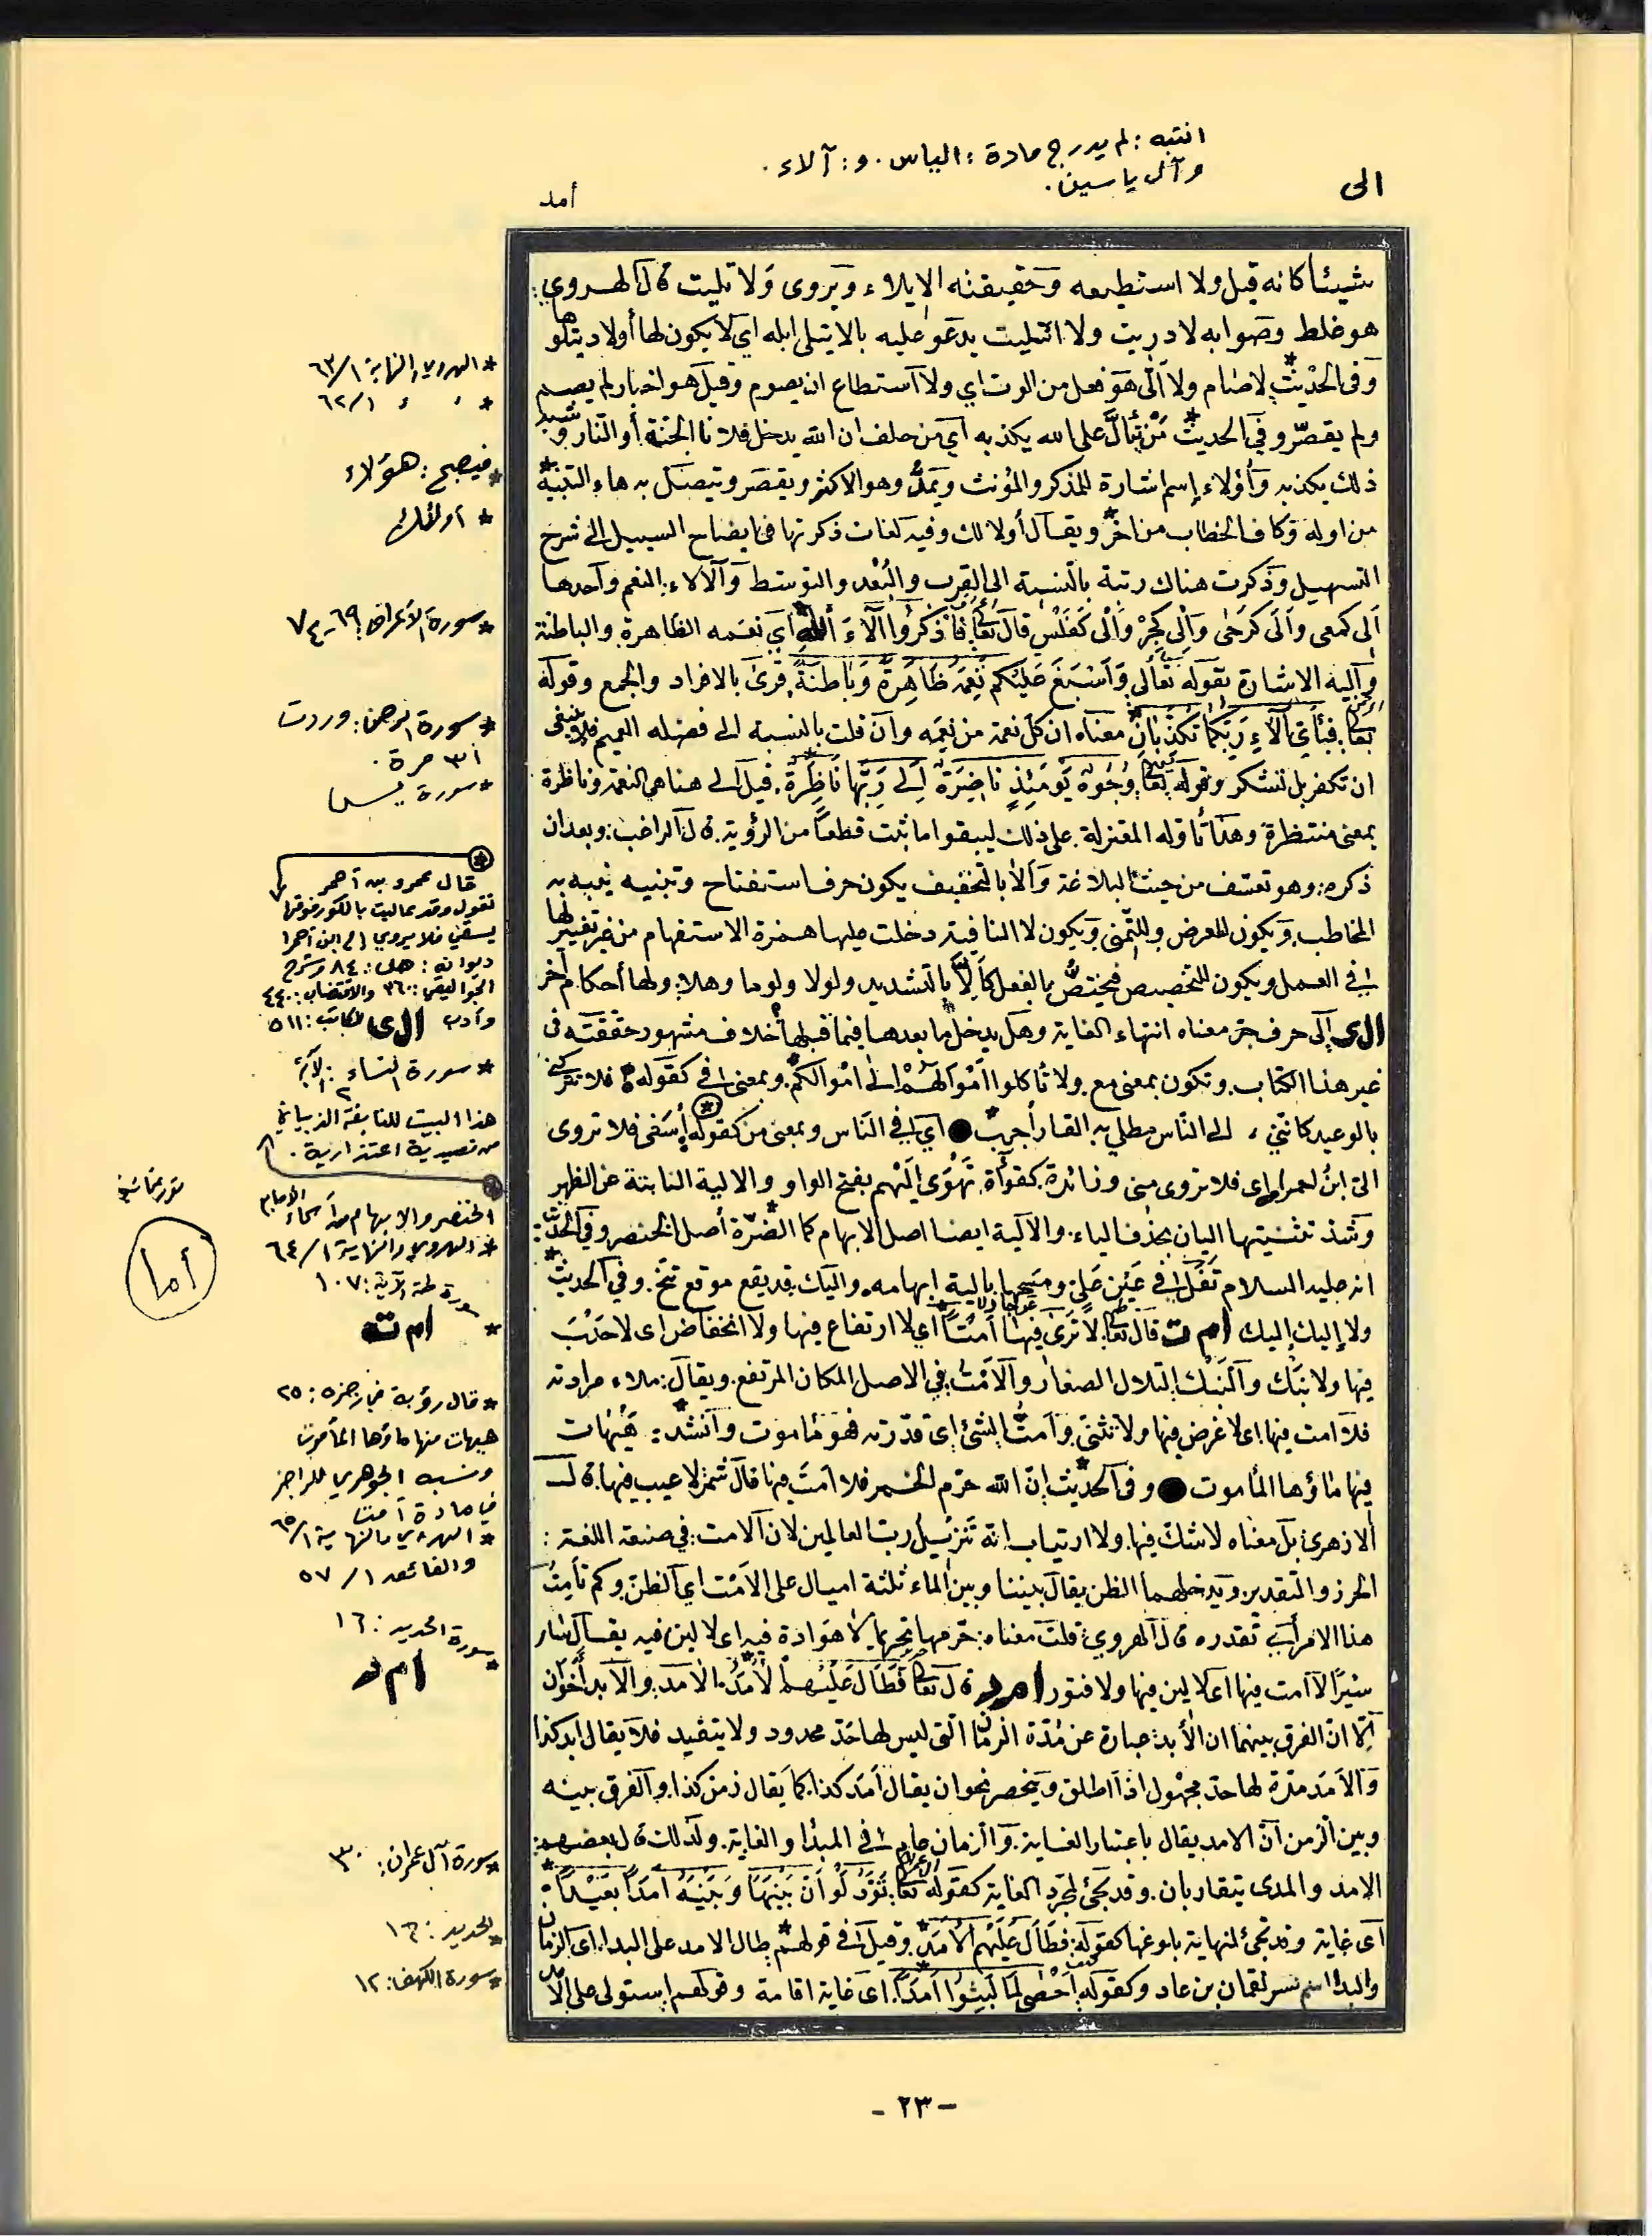 انتبه : لم يدرج مادة : الياس . و : آلاء .
وآل ياسين .
الى
أمد
شيئا كانه قيل ولا استطيعه وحقيقته الايلاء ويروى ولا تليت قال الهروى :
هو غلط وصوابه لا دريت ولا ائتليت يدعو عليه بالا يتلى ابله اى لا يكون لها أولاد يتلوها
وفى الحديث لا صام ولا ألّى هو فعل من الوت اي ولا استطاع ان يصوم وقيل هو اخبار لم يصم
ولم يقصر وفي الحديث مَنْ يَتَأَلَّ على الله يكذبه اي من حلف ان الله يدخل فلانا الجنة أو النار وشبه
ذلك يكذبه وأولاء إسم اشارة للمذكر والمؤنث ويمدُّ وهو الاكثر ويقصر ويتصل به هاء التنبيه
من اوله وكاف الخطاب من اخر ويقال أولا لك وفيه لغات ذكرتها في ايضاح السبيل الى شرح
التسهيل وذكرت هناك رتبة بالنسبة الى القرب والبُعْد والتوسط وَالآلاء : النعم واحدها
اَلى كمعى وَاَلَى كرَحَى وَاِلْي كحِجْر وَاَلْى كفَلْس قال تعالى فَاذْكُرُوا آلَآءَ اللهِ اي نعمه الظاهرة والباطنة
وآليه الاشارة بقوله تعالى وَاَسْبَغَ عَلَيْكُم نِعَمَهُ ظَاهِرَةً وَبَاطِنَةً قرئ بالافراد والجمع وقوله
تعا فَبِأَيِّ آلَآءِ رَبِّكُمَا تُكَذِّبَانِ معناه ان كل نعمة من نِعَمِه وان قلت بالنسبة الى فضله العميم فلا ينبغى
ان تكفر بل تشكر وقوله تعا وُجُوهٌ يَوْمَئِذٍ نَاضِرَةٌ اِلَى رَبِّهَا نَاظِرَةٌ قيل الى هنا هى النعمة وناظرة
بمعنى منتظرة وهذا تأوله المعتزلة على ذلك ليبقوا ما ثبت قطعاً من الرؤية قال الراغب : وبعد ان
ذكره : وهو تعسّف من حيث البلاغة وَاَلا بالتخفيف يكون حرف استفتاح وتنبيه ينبه به
المخاطب ويكون للعرض وللتّمنى ويكون لا النافية دخلت عليها همزة الاستفهام من غير تغيير لها
فى العمل ويكون للتحضيص فيختصُّ بالفعل كأَلاَّ بالتشديد ولولا ولوما وهلا ولها أحكام أخر
ال ى إلى حرف جر معناه انتهاء الغاية وهل يدخل ما بعدها فيما قبلها خلاف مشهور حققته فى
غير هذا الكتاب وتكون بمعنى مع ولا تأكلوا اَمْوَالَهُمْ اِلَى اَمْوَالِكُمْ وبمعنى فى كقوله فلا تتركنى
بالوعيد كاننى ، الى الناس مطلي به القار أجرب اي فى النّاس وبمعنى من كقوله أَيُسْقَى فلا تروى
الىّ ابنُ احمرا اى فلا تروى منى وزائدة كقراءة تَهْوَى إلَيْهِم بفتح الواو والالية النابتة عن الظهر
وشذ تثنيتها اليان بحذف الياء والآلية ايضا اصل الابهام كما الضرّة أصل الخنصر وفى الحديث :
انه عليه السلام تَفَل فى عَيْن عَلِيٍّ ومسحها بالية ابهامه واليك قد يقع موقع تنحّ وفى الحديث
ولا إليك إليك ام ت قال تعا لَا تَرَى فِيهَا عِوَجًا وَلَا اَمْتًا اى لا ارتفاع فيها ولا انخفاض اى لا حَدَبَ
فيها ولا نَبَك وَالنَّبَكُ التلال الصغار والاَمْتُ في الاصل المكان المرتفع ويقال : ملاء مزادته
فلا امت فيها اى لا غرض فيها ولا تثنى وامتُّ الشئ اى قدّرته فهو مأموت وانشد : هيهات
فيها ماؤها المأموت وفى الحديث إنّ الله حرّم الخمر فلا امتَ فيها قال شمر لا عيب فيها قال
الازهرى بل معناه لا شكّ فيها ولا ارتياب انه تَنْزيلُ ربّ العالمين لان الامت في صنعة اللغة :
الحرز والتقدير ويدخلهما الظن يقال بيننا وبين الماء ثلثة اميال على الاَمْت اي الظن وكم تأمِتُ
هذا الامر اي تقدره قال الهروي : قلت معناه : حرّمها تحريما لا هوادة فيه اى لا لين فيه يقال سار
سَيْرًا لا امت فيها اى لا لين فيها ولا فتور ام د قال تعا فَطَالَ عَلَيْهِمُ الْأَمَدُ الامد والابد أَخَوَان
اِلّا انّ الفرق بينهما ان الأبد عبارة عن مُدّة الزمان التى ليس لها حَدّ محدود ولا يتقيد فلا يقال ابد كذا
وَالاَمَد مدّة لها حد مجهول اذا اطلق وينحصر نحو ان يقال أمَد كذا كما يقال زمن كذا والفرق بينه
وبين الزمن انّ الامد يقال باعتبار الغاية وَالزمان عام فى المبدأ والغاية ولذلك قال بعضهم :
الامد والمدى يتقاربان وقد يجئ لمجرد الغاية كقوله تعا تَوَدُّ لَوْ اَنَّ بَيْنَهَا وَبَيْنَهُ اَمَدًا بَعِيْدًا :
اى غاية وقد تجئ لنهاية بلوغها كقوله فَطَالَ عَلَيْهِمُ الأَمَدُ وقيل فى قولهم طال الامد على البدا اى الزمان
والبدا اسم نسر لقمان بن عاد وكقوله اَحْصَى لِمَا لَبِثُوا اَمَدًا اى غاية اقامة وقولهم استولى على الامد
* الهروي والنهاية ١/٦٣
* ، ، ١/٦٢
* فيصبح : هؤلاء
* أولئك
* سورة الأعراف ٦٩-٧٤
* سورة الرحمن : وردت
٣١ مرة .
* سورة
قال عمرو بن أحمر
تقول وقد عاليت بالكور فوقها
يسقى فلا يروي إلي ابن أحمرا
ديوانه : ص : ٨٤ وشرح
الجواليقي : ٣٦٠ والاقتضاب : ٤٤٠
وأدب الكاتب : ٥١١
ال ى
* سورة النساء : الآية ٢
هذا البيت للنابغة الذبياني
من قصيدة اعتذارية .
الخنصر والابهام
* الهروي والنهاية ١/٦٤
سورة طه الآية : ١٠٧
* ام ت
أما
* قال رؤبة في رجزه : ٢٥
هيهات منها ماؤها المأموت
ونسبه الجوهري للراجز
في مادة أمت
* الهروي والنهاية ١/٦٥
والفائق ١/٥٧
* سورة الحديد : ١٦
ام د
* سورة آل عمران : ٣٠
* الحديد : ١٦
* سورة الكهف : ١٢
- ٢٣ -